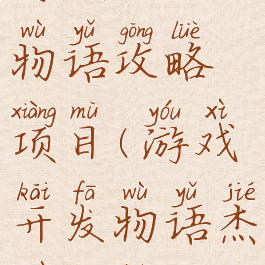 wù yǔ gōng lüè
物语攻略
xiàng mù yóu xì
项目(游戏
kāi fā wù yǔ jié
开发物语杰